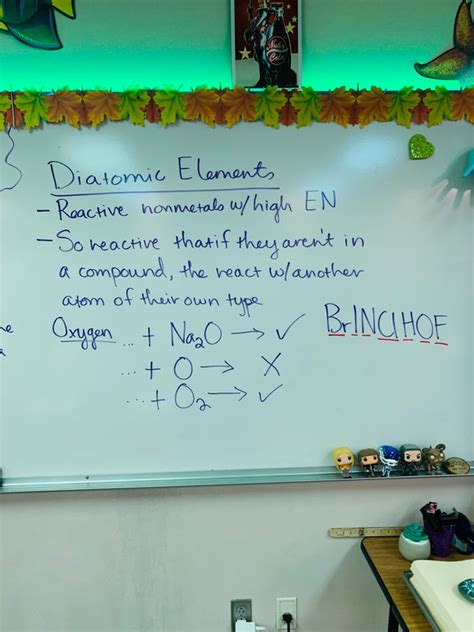 Diatomic Elements
- Reactive nonmetals w/ high EN
- So reactive that if they aren't in
a compound, the react w/ another
atom of their own type
Oxygen ... + Na2O → ✓
... + O → X
... + O2 → ✓
BrINClHOF
Nuka
Cola